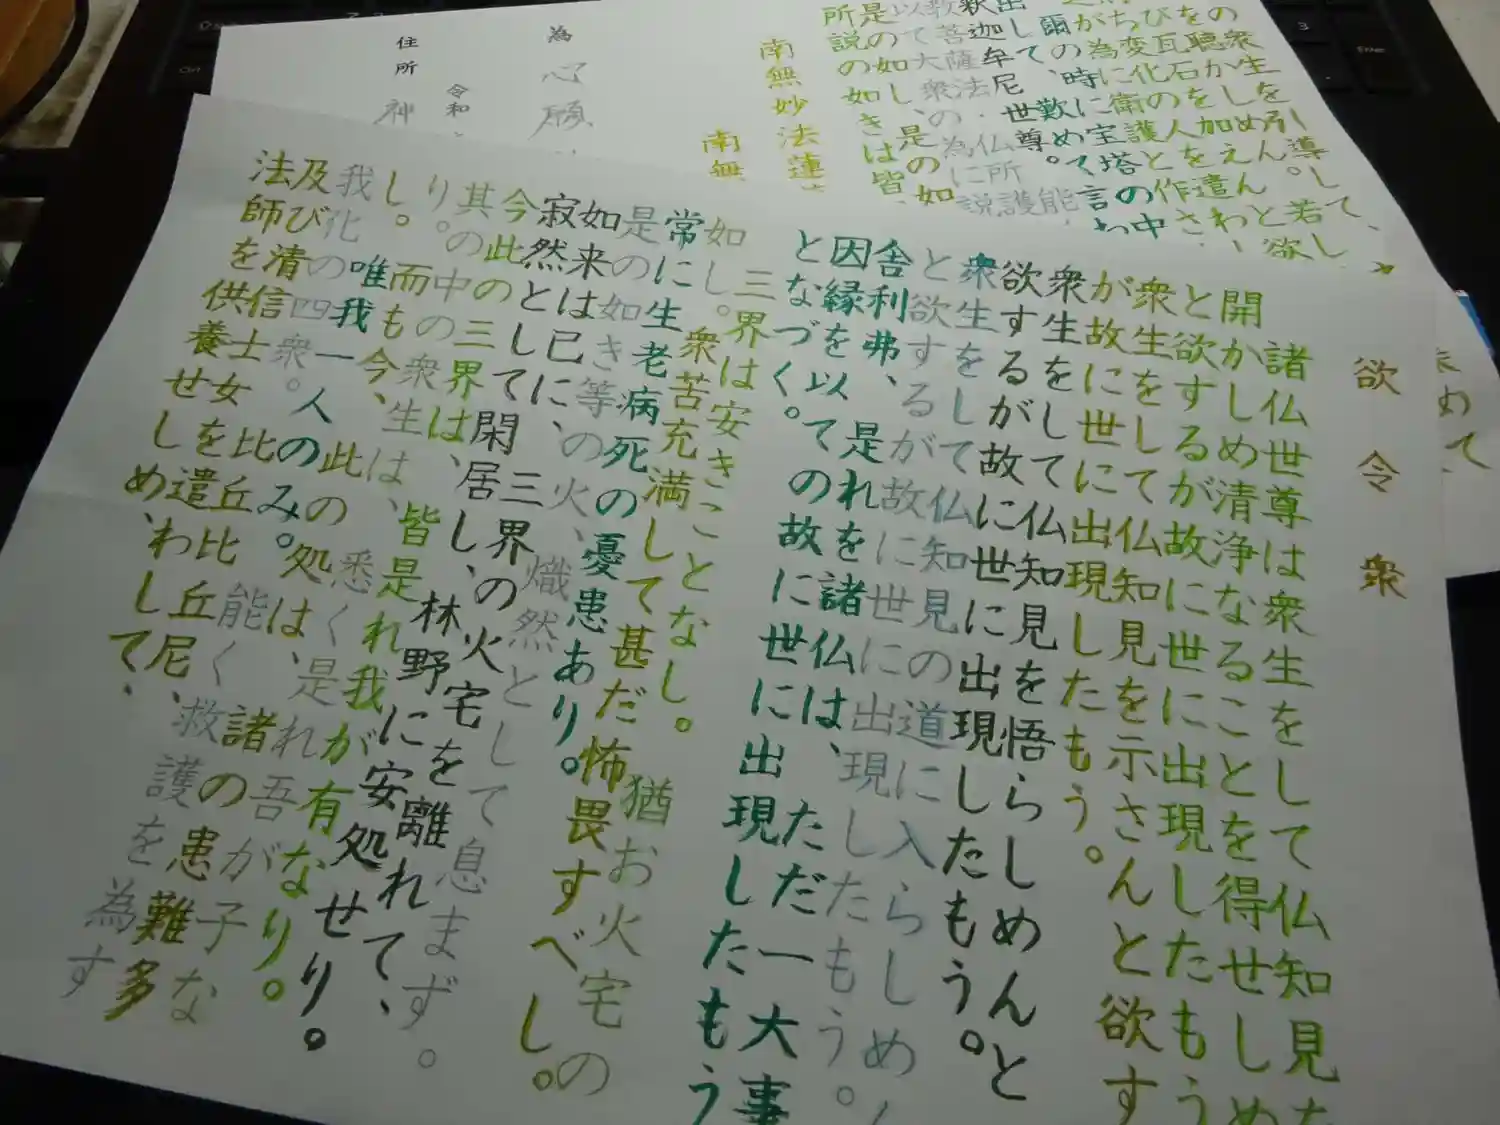 欲令衆
諸仏世尊は衆生をして仏知見
開かしめ清浄なることを得せしめ
と欲するが故に世に出現したもう
衆生をして仏知見を示さんと欲す
が故に世に出現したもう。
衆生をして仏知見を悟らしめんと
欲するが故に世に出現したもう。
衆生をして仏知見の道に入らしめん
と欲するが故に世に出現したもう。
舎利弗、是れを諸仏は、ただ一大事
因縁を以ての故に世に出現したもう
となづく。
三界は安きことなし。猶お火宅の
如し。衆苦充満して甚だ怖畏すべし。
常に生老病死の憂患あり。
是の如き等の火、熾然として息まず。
如来は已に、三界の火宅を離れて、
寂然として閑居し、林野に安処せり。
今此の三界は、皆是れ我が有なり。
其の中の衆生は、悉く是れ吾が子な
り。而も今、此の処は、諸の患難多
し。唯我一人のみ。能く救護を為す
我化の四衆。比丘比丘尼、
及び清信士女を遣わして、
法師を供養せしめ、
衆生を引導して、
釈迦牟尼世尊
所説の如きは皆
南無妙法蓮
南無
為心願
令和
住所 神